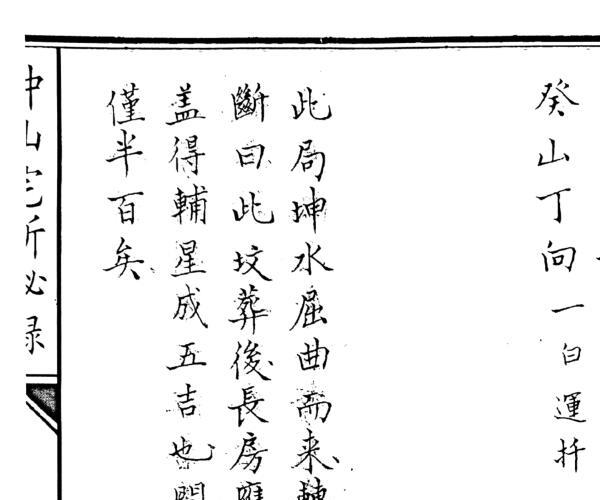 癸山丁向一白運扦
此局坤水屈曲而来、
斷曰此坟葬後長房
盖得輔星成五吉也
僅半百矣、
仲山宅斷秘録